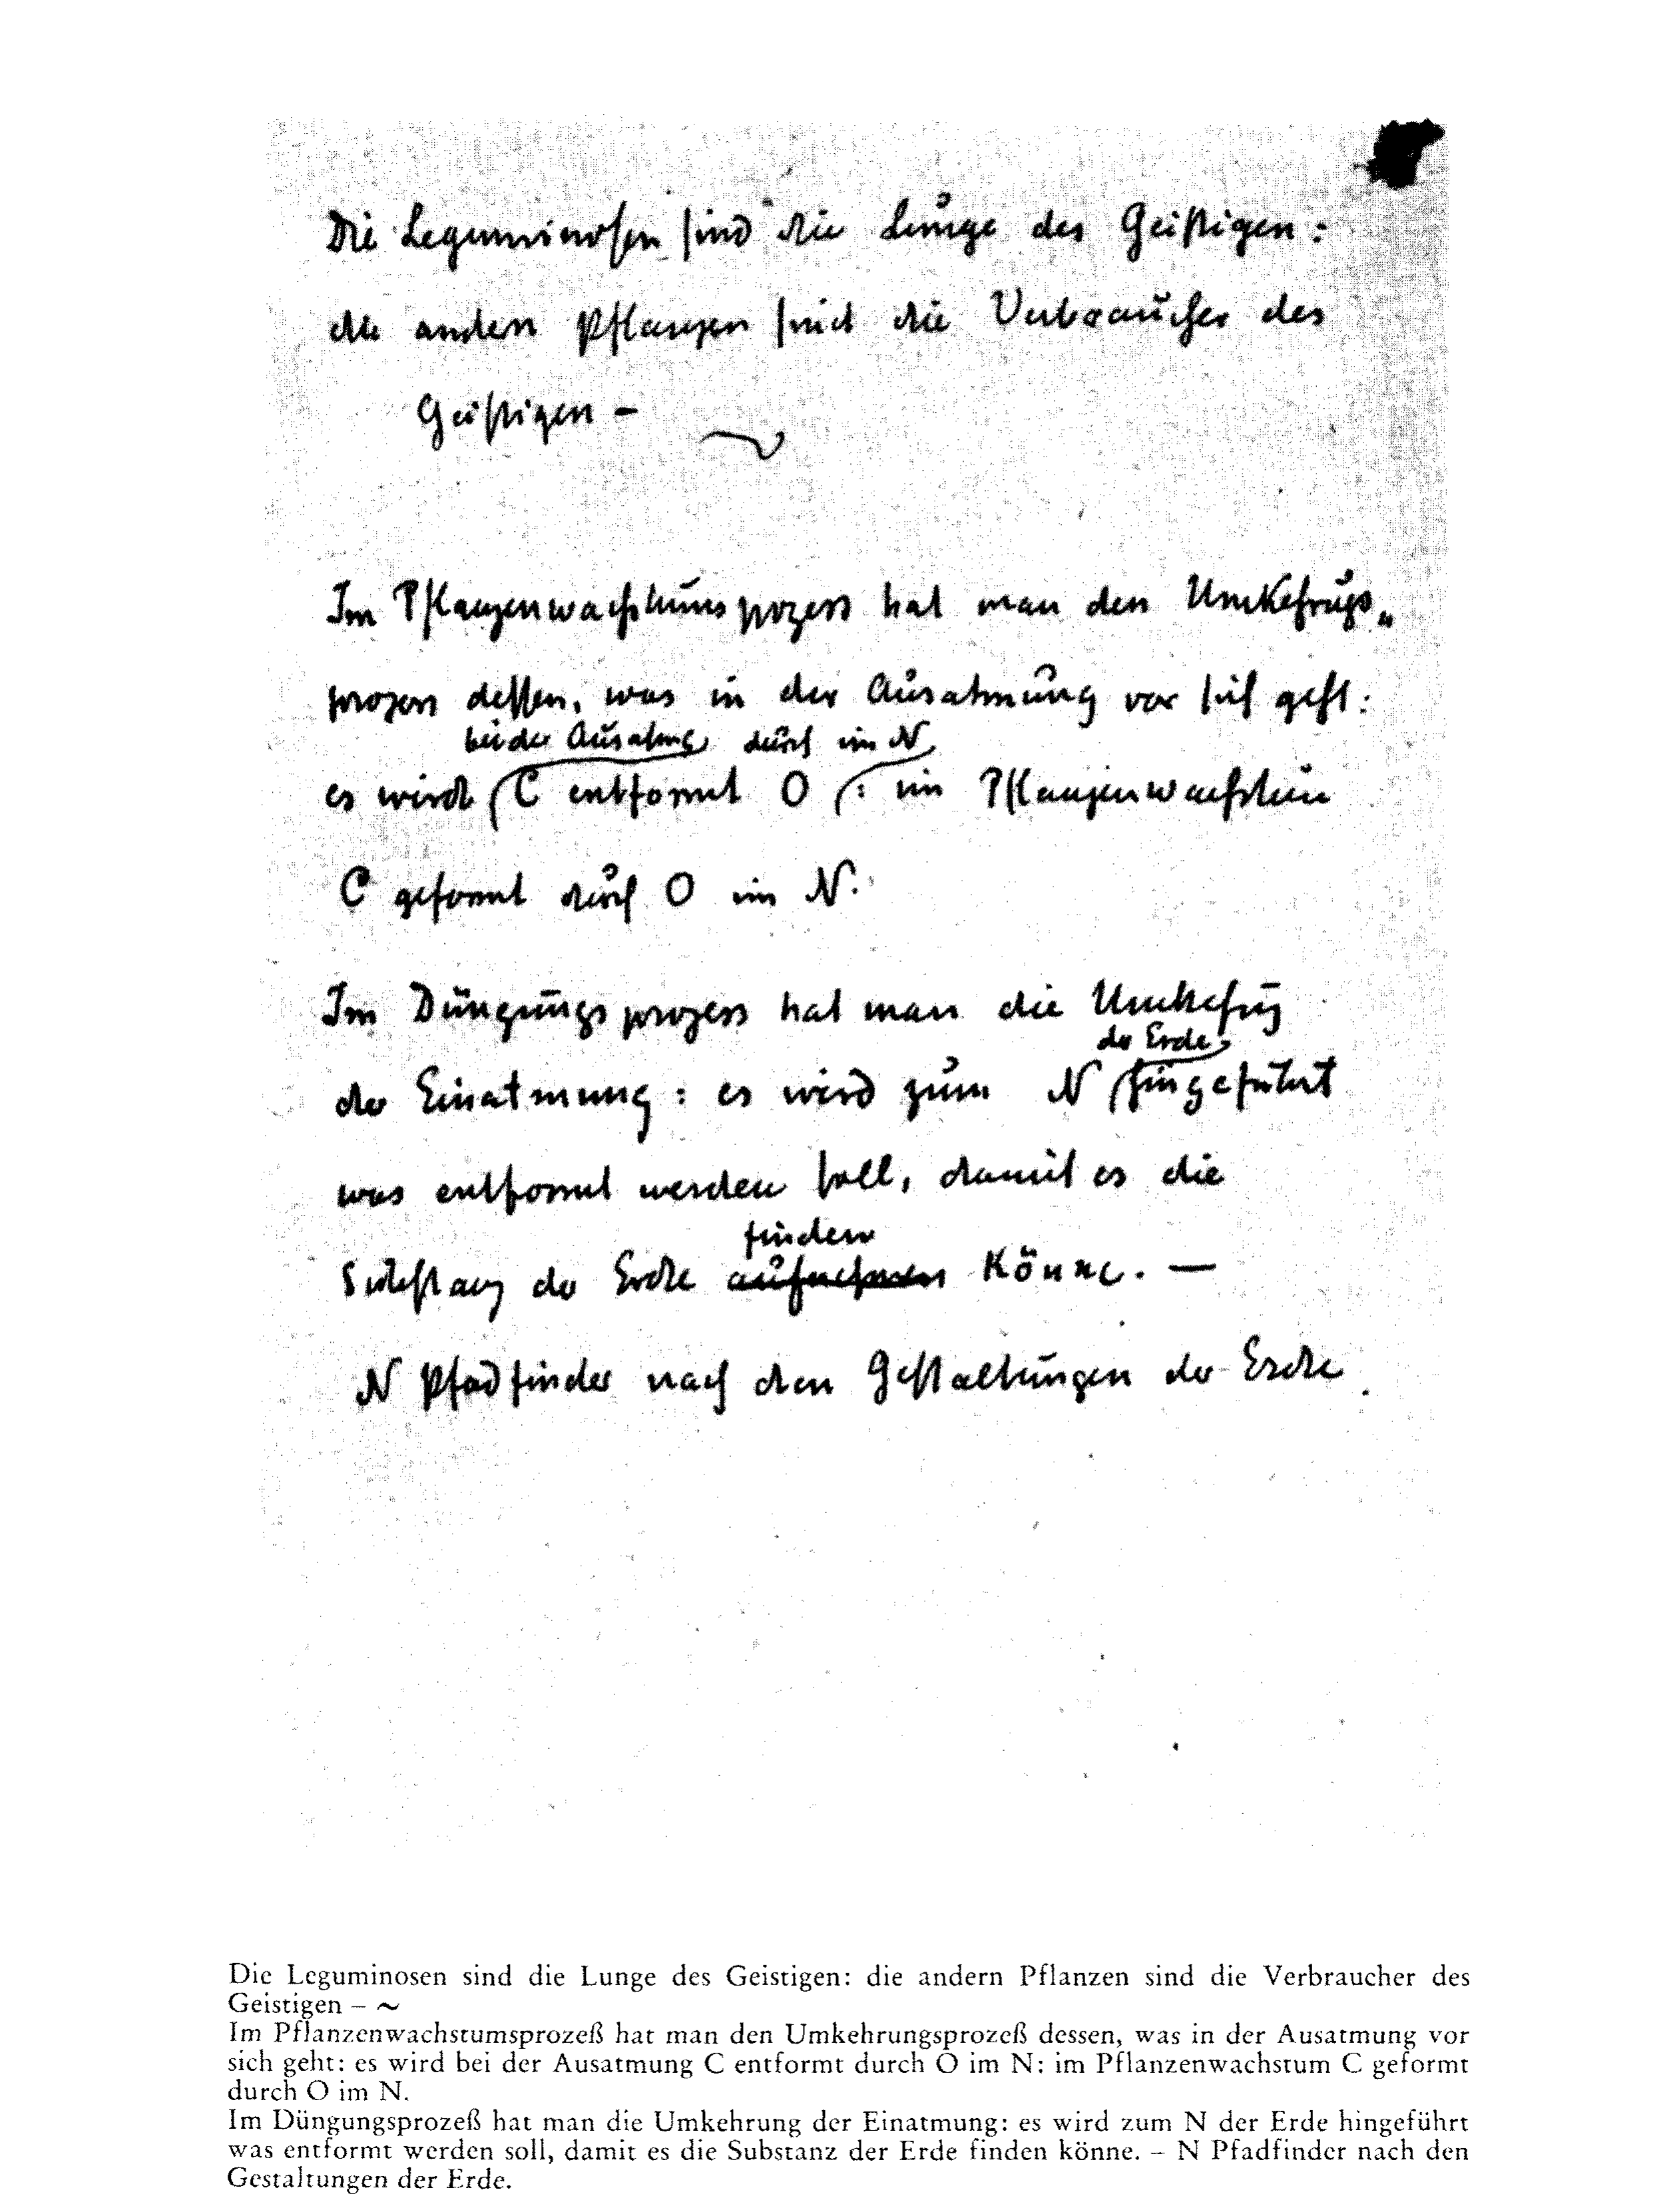 Die Leguminosen sind die Lunge des Geistigen:
die andern Pflanzen sind die Verbraucher des
Geistigen –
Im Pflanzenwachstumsprozess hat man den Umkehrungs„
prozess dessen, was in der Ausatmung vor sich geht:
bei der Ausatmg durch im N
es wird C entformt O : im Pflanzenwachstum
C geformt durch O im N.
Im Düngungsprozess hat man die Umkehrung
der Erde
der Einatmung: es wird zum N hingeführt
was entformt werden soll, damit es die
finden
Substanz der Erde aufnehmen könne. —
N Pfadfinder nach den Gestaltungen der Erde.
Die Leguminosen sind die Lunge des Geistigen: die andern Pflanzen sind die Verbraucher des
Geistigen – ~
Im Pflanzenwachstumsprozeß hat man den Umkehrungsprozeß dessen, was in der Ausatmung vor
sich geht: es wird bei der Ausatmung C entformt durch O im N: im Pflanzenwachstum C geformt
durch O im N.
Im Düngungsprozeß hat man die Umkehrung der Einatmung: es wird zum N der Erde hingeführt
was entformt werden soll, damit es die Substanz der Erde finden könne. – N Pfadfinder nach den
Gestaltungen der Erde.